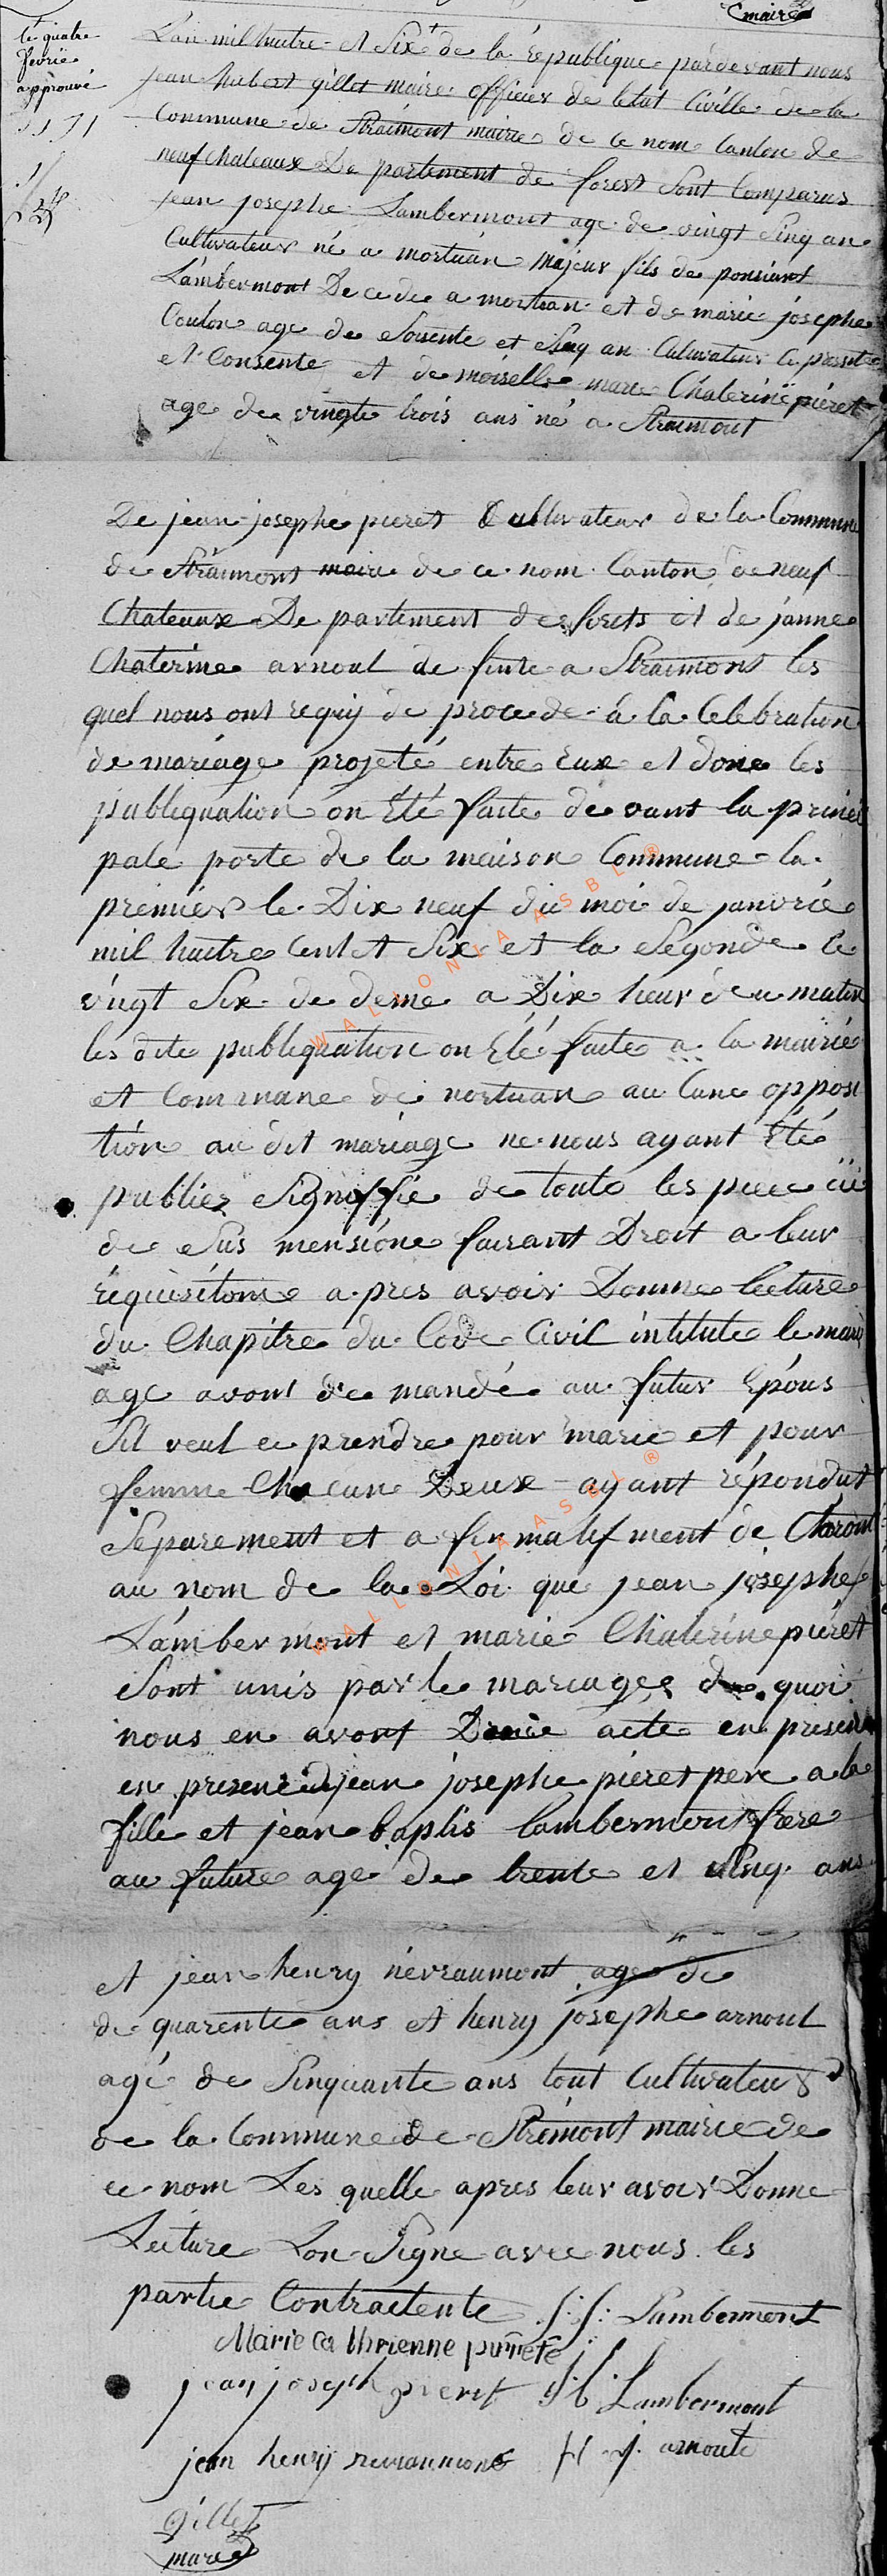 maire
le quatre
fevrié
approuvé
L'an mil huitre et Six de la republique pardevant nous
jean hubert gillet maire officier de letat Civille de la
Commune de Straimont mairie de ce nom Canton de
neufchateaux De partement de forest Sont Comparus
jean josephe Lambermont age de vingt Sinq an
Cultivateur né a mortuan majeur fils de ponsiant
Lambermont Decede a mortuan et de marie josephe
Coulon age de Soisente et Sinq an Cultivateur Ce present
et Consente et demoiselle marie Chaterine piéret
age de vingte trois ans né a Straimont
De jean josephe pieret Cultivateur de la Commune
de Straimont maire de ce nom Canton de neuf
Chateaux De partement de forets et de janne
Chaterine arnoul de funte a Straimont les
quel nous ont requis de procede a la Celebration
de mariage projeté entre Eux et done les
publiquation on Eté faite de vant la princi
pale porte de la maison Commune la
premier le Dix neuf du moi de janvrié
mil huitre Cent et Six et la Segonde le
vingt Six de deme a Dix heur deu matin
les dite publiquation on Eté faite a la mairie
et Commune de nortuan au Cune opposi
tion au dit mariage ne nous ayant Eté
publiez Signiffie de toute les piece ci
de Sus mensione faisant Droit a leur
requisitoire a pres avoir Donne lecture
du Chapitre du Code Civil intitute le mari
age avont de mandé au futur Epous
Sil veul ce prendre pour marie et pour
femme Chacune Deux ayant répondut
Separement et a firmatif ment de Claront
au nom de la Loi que jean josephe
Lambermont et marie Chaterine piéret
Sont unis par le mariage de quoi
nous en avont acte en presen
en presence de jean josephe pieret pere a la
fille et jean baptis lambermont frere
au future age de trente et Sinq ans
et jean henry nevraumont age de
de quarente ans et henry josephe arnoul
agé de Sinquante ans tout Cultivateur
de la Commune de Strémont mairie de
ce nom Les quelle apres leur avoir Donne
Lecture Lon Signe avec nous les
partie Contractente J: J: Lambermont
Marie ca thrienne pierete
jean joseph pieret J: b: Lambermont
jean henry nevraumont H J. arnoule
Gillet
maire
WALLONIA ASBL ®
WALLONIA ASBL ®